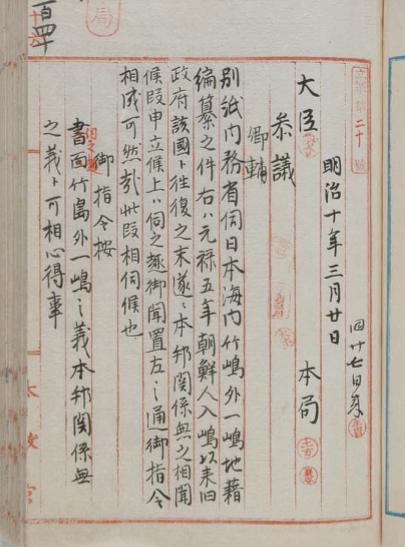 立案第二十号
明治十年三月廿日
大臣 本局
参議
卿輔
別紙内務省伺日本海内竹嶋外一嶋地籍
編纂之件右ハ元禄五年朝鮮人入嶋以来旧
政府該国ト往復之末遂ニ本邦関係無之相聞
候段申立候上ハ伺之趣御聞置左之通御指令
相成可然哉此段相伺候也
御指令按
伺之趣
書面竹島外一嶋之義本邦関係無
之義ト可相心得事
百四十
局
太政官